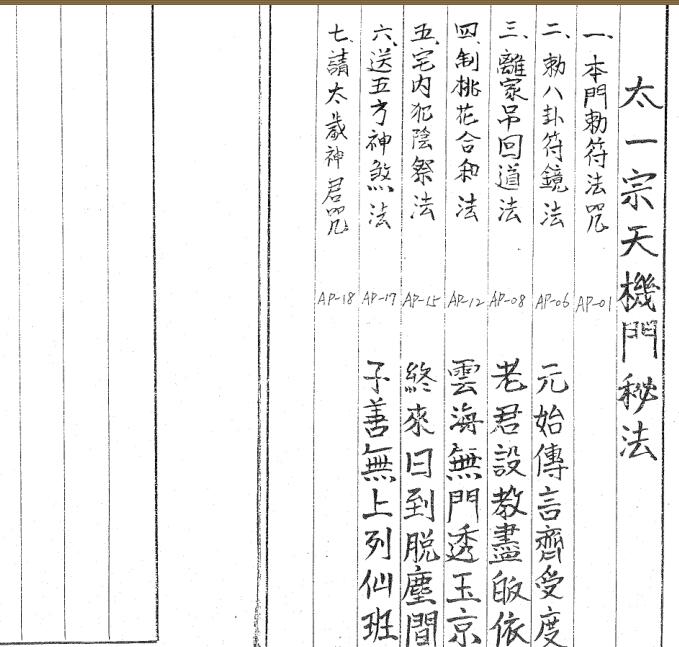 太一宗天機門秘法
一、本門勅符法咒 AP-01
二、勅八卦符鏡法 AP-06
三、離家吊回道法 AP-08
四、制桃花合和法 AP-12
五、宅内犯陰祭法 AP-15
六、送五方神煞法 AP-17
七、請太歲神君咒 AP-18
元始傳言齊受度
老君設教盡皈依
雲海無門透玉京
終來日到脱塵間
子善無上列仙班